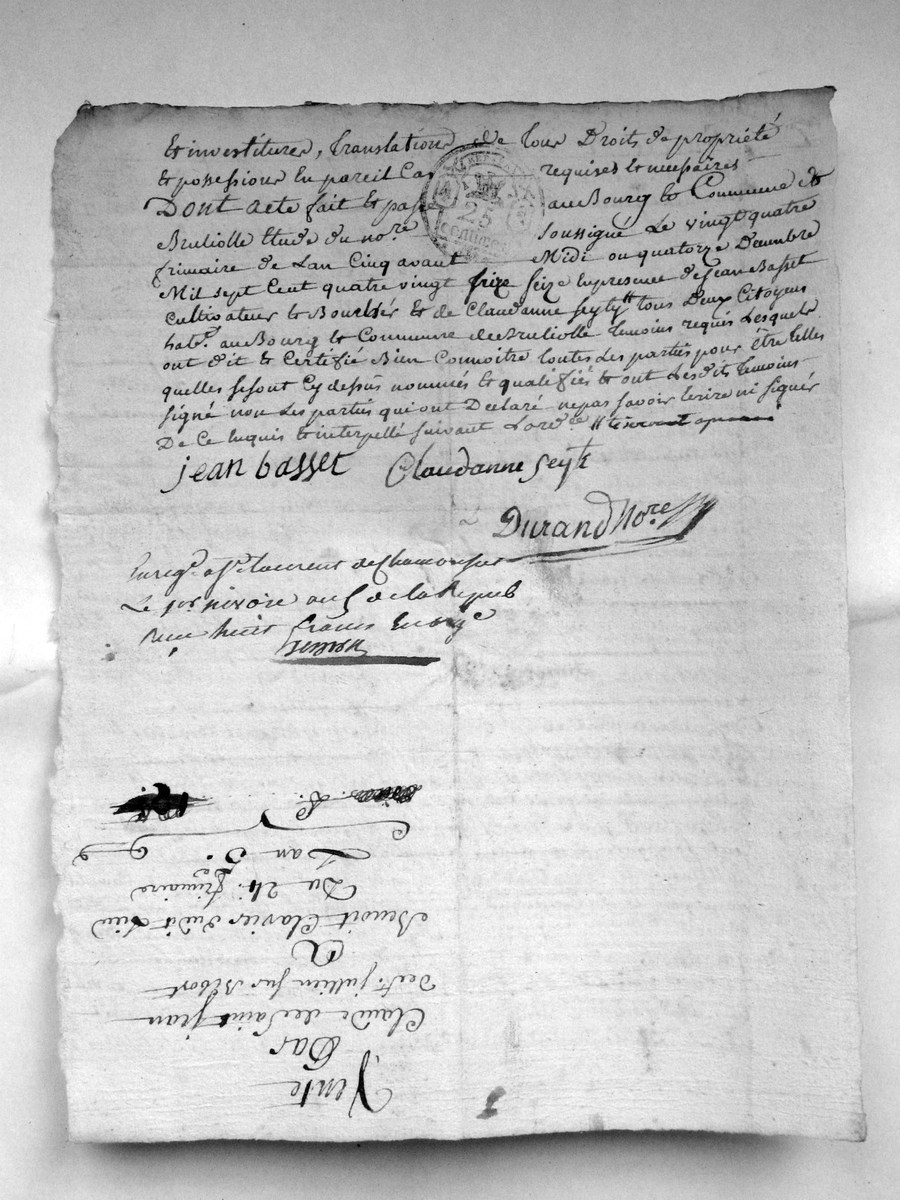 Et investiture, Translation de Tous Droits de propriété
Et possession En pareil Cas requises et necessaires
Dont acte fait Et passé au Bourg Et Commune de
Brulliolle Etude du no.re soussigné Le vingt quatre
frimaire de Lan Cinq avant Midi ou quatorze Decembre
Mil sept Cent quatre vingt seize En presence de Jean Basset
Cultivateur et de Claudanne Seytt tous Deux Citoyens
hab.t au Bourg Et Commune de Brulliolle Temoins requis Lesquels
ont dit Et Certifié Bien Connoitre toutes Les parties pour Etre telles
quelles se sont Cy dessus nommés Et qualifiés Et ont Lesdits temoins
signé non Les parties qui ont Declaré ne pas savoir Ecrire ni signer
De Ce Enquis Et interpellé suivant Lord.ce
25
Centimes
jean basset Claudanne Seytt
Durand No.re
Enreg.é a S.t Laurent de Chamousset
Le p.er nivose an 5 de la Repub
Recu huit francs
Vente
Par
Claude de Saint jean
de S.t jullien sur Bibost
A
Benoit Clavier dudit Lieu
Du 24 frimaire
Lan 5.e